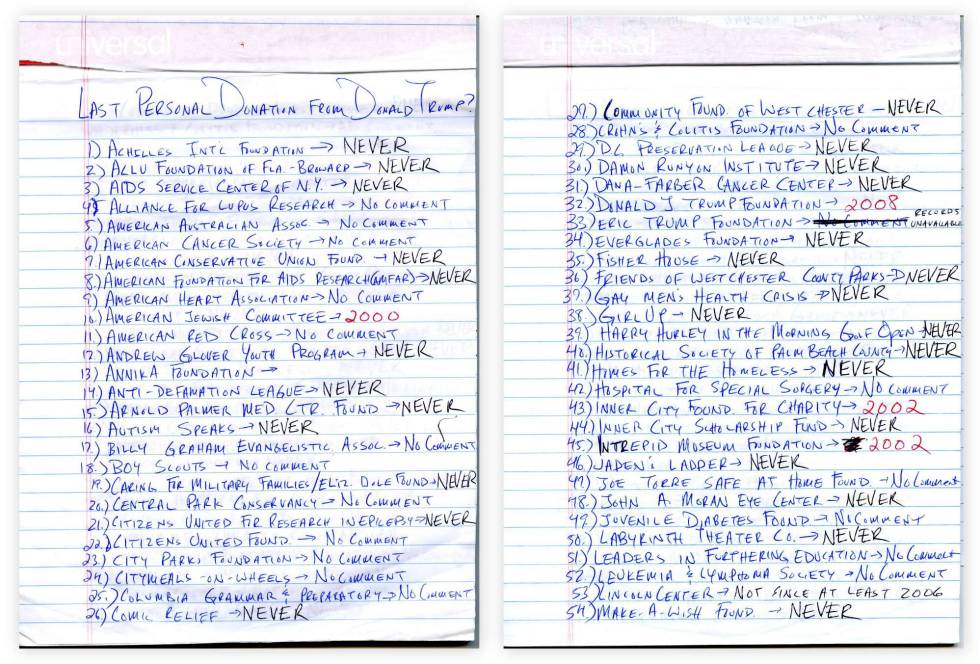 universal
LAST PERSONAL DONATION FROM DONALD TRUMP?
1) ACHILLES INT'L FUNDATION → NEVER
2) ALLU FOUNDATION OF FLA.-BROWARD → NEVER
3) AIDS SERVICE CENTER OF N.Y. → NEVER
4) ALLIANCE FOR LUPUS RESEARCH → NO COMMENT
5.) AMERICAN AUSTRALIAN ASSOC. → NO COMMENT
6) AMERICAN CANCER SOCIETY → NO COMMENT
7.) AMERICAN CONSERVATIVE UNION FOUND. → NEVER
8.) AMERICAN FOUNDATION FOR AIDS RESEARCH (AMFAR) → NEVER
9) AMERICAN HEART ASSOCIATION → NO COMMENT
10.) AMERICAN JEWISH COMMITTEE → 2000
11.) AMERICAN RED CROSS → NO COMMENT
12.) ANDREW GLOVER YOUTH PROGRAM → NEVER
13) ANNIKA FOUNDATION →
14) ANTI-DEFAMATION LEAGUE → NEVER
15.) ARNOLD PALMER MED CTR. FOUND → NEVER
16) AUTISM SPEAKS → NEVER
17.) BILLY GRAHAM EVANGELISTIC ASSOC. → NO COMMENT
18.) BOY SCOUTS → NO COMMENT
19.) CARING FOR MILITARY FAMILIES/ELIZ. DOLE FOUND → NEVER
20.) CENTRAL PARK CONSERVANCY → NO COMMENT
21.) CITIZENS UNITED FOR RESEARCH IN EPILEPSY → NEVER
22.) CITIZENS UNITED FOUND. → NO COMMENT
23.) CITY PARKS FOUNDATION → NO COMMENT
24.) CITYMEALS-ON-WHEELS → NO COMMENT
25.) COLUMBIA GRAMMAR & PREPARATORY → NO COMMENT
26) COMIC RELIEF → NEVER
universal
27.) COMMUNITY FOUND. OF WESTCHESTER — NEVER
28.) CROHN'S & COLITIS FOUNDATION → NO COMMENT
29.) DC PRESERVATION LEAGUE → NEVER
30.) DAMON RUNYON INSTITUTE → NEVER
31.) DANA-FARBER CANCER CENTER → NEVER
32.) DONALD J TRUMP FOUNDATION → 2008
33.) ERIC TRUMP FOUNDATION → NO COMMENT RECORDS UNAVAILABLE
34.) EVERGLADES FOUNDATION → NEVER
35.) FISHER HOUSE → NEVER
36.) FRIENDS OF WESTCHESTER COUNTY PARKS → NEVER
37.) GAY MEN'S HEALTH CRISIS → NEVER
38.) GIRL UP → NEVER
39.) HARRY HURLEY IN THE MORNING GOLF OPEN → NEVER
40.) HISTORICAL SOCIETY OF PALM BEACH COUNTY → NEVER
41.) HOMES FOR THE HOMELESS → NEVER
42.) HOSPITAL FOR SPECIAL SURGERY → NO COMMENT
43.) INNER CITY FOUND FOR CHARITY → 2002
44.) INNER CITY SCHOLARSHIP FUND → NEVER
45.) INTREPID MUSEUM FOUNDATION → 2002
46.) JADEN'S LADDER → NEVER
47.) JOE TORRE SAFE AT HOME FOUND → NO COMMENT
48.) JOHN A. MORAN EYE CENTER → NEVER
49.) JUVENILE DIABETES FOUND → NO COMMENT
50.) LABYRINTH THEATER CO. → NEVER
51.) LEADERS IN FURTHERING EDUCATION → NO COMMENT
52.) LEUKEMIA & LYMPHOMA SOCIETY → NO COMMENT
53.) LINCOLN CENTER → NOT SINCE AT LEAST 2006
54.) MAKE-A-WISH FOUND. → NEVER